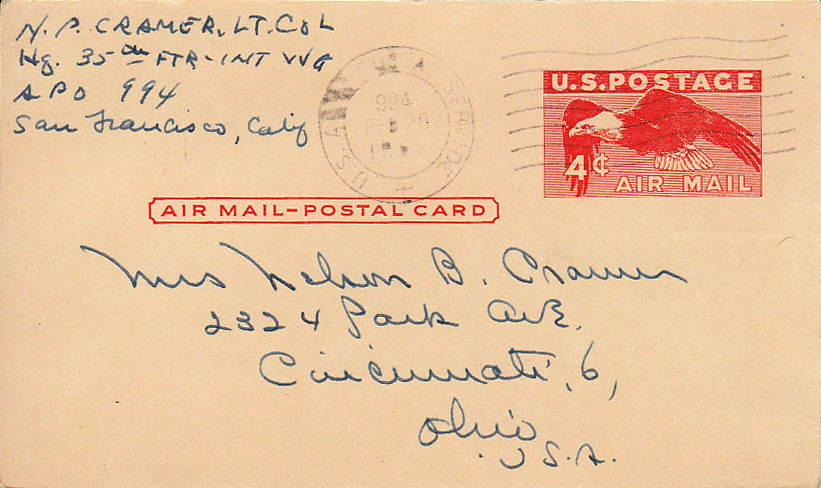 N. P. CRAMER, LT. COL
Hq. 35th FTR-INT WG
APO 994
San Francisco, Calif
U.S.A. SERVICE
994
FEB 26
U.S. POSTAGE
4¢ AIR MAIL
AIR MAIL-POSTAL CARD
Mrs Nelson B. Cramer
2324 Park Ave.
Cincinnati, 6,
Ohio
U.S.A.